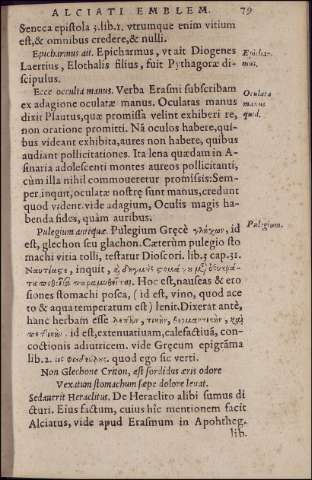 ALCIATI EMBLEM. 79
Seneca epistola 3.lib.1. vtrumque enim vitium
est,& omnibus credere,& nulli.
Epicharmus ait. Epicharmus, vt ait Diogenes
Laertius, Elothalis filius, fuit Pythagoræ di-
scipulus.
Epichar-
mus.
Ecce occulta manus. Verba Erasmi subscribam
ex adagione oculatæ manus. Oculatas manus
dixit Plautus,quæ promissa velint exhiberi re,
non oratione promitti. Nā oculos habere,qui-
bus videant exhibita,aures non habere, quibus
audiant pollicitationes. Ita lena quædam in A-
sinaria adolescenti montes aureos pollicitanti,
cùm illa nihil commoueretur promissis:Sem-
per,inquit,oculatæ nostrę sunt manus,credunt
quod vident.vide adagium, Oculis magis ha-
benda fides, quàm auribus.
Oculata
manus
quid.
Pulegium aureque. Pulegium Græcè γλάχων, id
est, glechon seu glachon.Cæterùm pulegio sto
machi vitia tolli, testatur Dioscori. lib.3 cap.32.
Pulegium.
inquit,
Hoc est,nauseas & ero
siones stomachi posca, ( id est, vino, quod ace
to & aqua temperatum est) lenit.Dixerat antè,
hanc herbam esse
id est,extenuatiuam,calefactiuā, con-
coctionis adiutricem. vide Græcum epigrāma
lib.2. quod ego sic verti.
Non Glechone Criton, æst sordidus æris odore
Vexatum stomachum sæpe dolore leuat.
Sed aurrit Heraclitus. De Heraclito alibi sumus di
cturi. Eius factum, cuius hîc mentionem facit
Alciatus, vide apud Erasmum in Apohtheg.
lib.